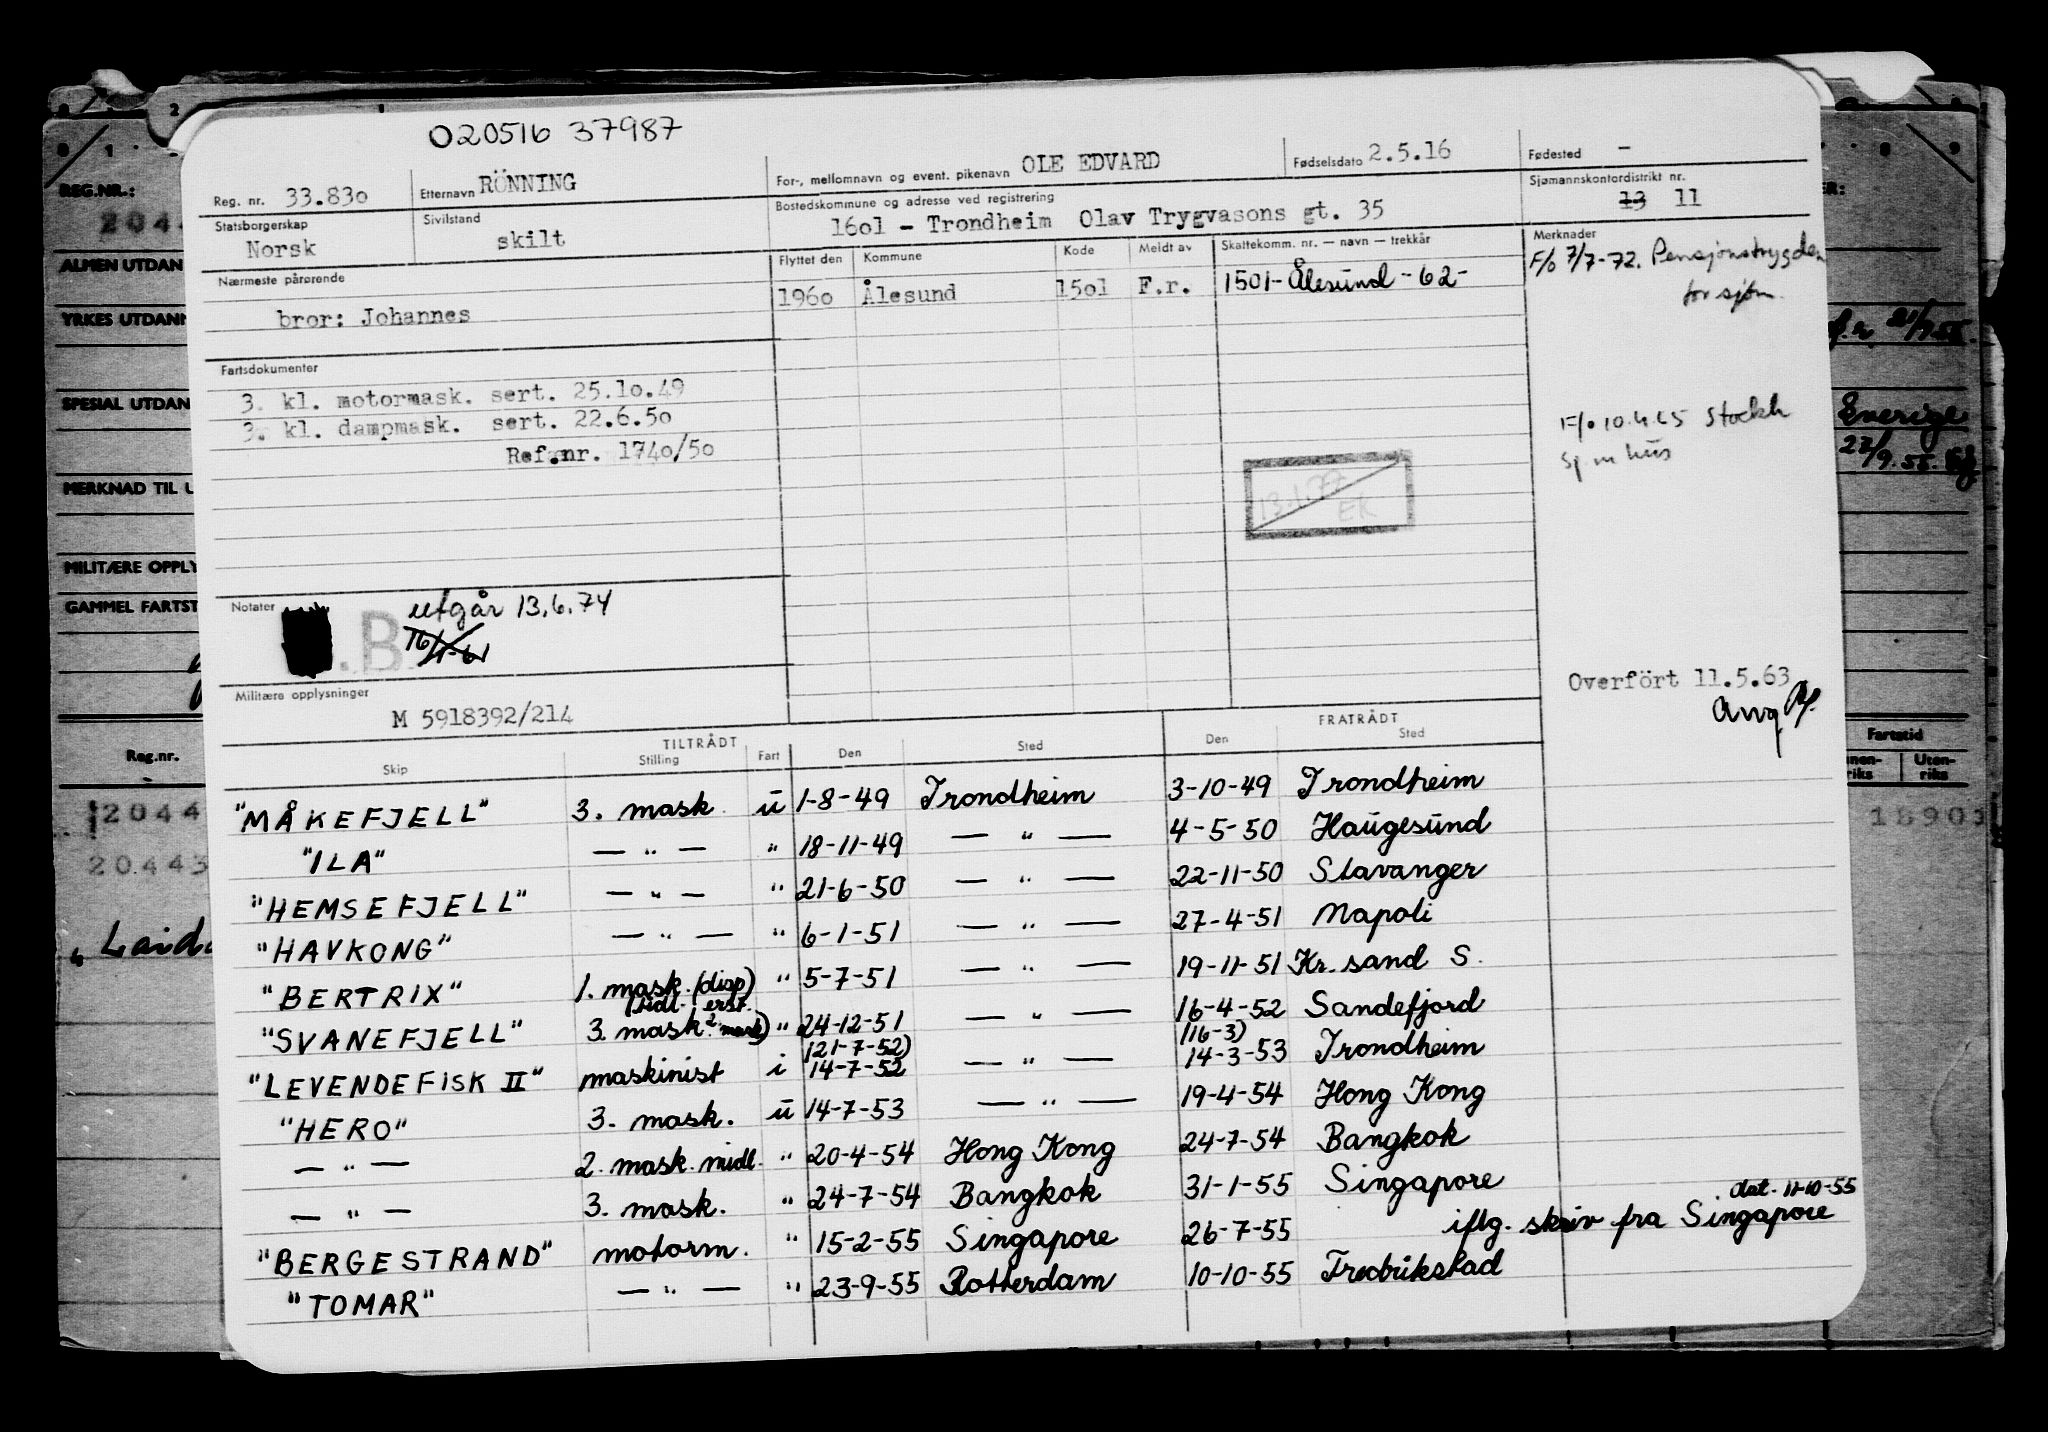 020516 37987
Reg. nr. 33.83o Etternavn RÖNNING For-, mellomnavn og event. pikenavn OLE EDVARD Fødselsdato 2.5.16 Fødested -
Statsborgerskap Norsk Sivilstand skilt Bostedskommune og adresse ved registrering 16o1 - Trondheim Olav Trygvasons gt. 35 Sjømannskontordistrikt nr. 13 11
Nærmeste pårørende Flyttet den Kommune Kode Meldt av Skattekomm. nr. — navn — trekkår Merknader
bror: Johannes 196o Ålesund 15o1 F.r. 1501-Ålesund-62- F/o 7/7-72. Pensjonstrygden
for sjøm.
Fartsdokumenter
3. kl. motormask. sert. 25.1o.49
3. kl. dampmask. sert. 22.6.5o
Ref.nr. 174o/5o
F/o 10.4.65 Stockh
sj.m hus
13.1.77
EK
Notater B utgår 13.6.74
16/1-61
Militære opplysninger
M 5918392/214
Overfört 11.5.63
TILTRÅDT FRATRÅDT
Skip Stilling Fart Den Sted Den Sted
"MÅKEFJELL" 3. mask. u 1-8-49 Trondheim 3-10-49 Trondheim
"ILA" — " — " 18-11-49 — " — 4-5-50 Haugesund
"HEMSEFJELL" — " — " 21-6-50 — " — 22-11-50 Stavanger
"HAVKONG" — " — " 6-1-51 — " — 27-4-51 Napoli
"BERTRIX" 1. mask. (disp) " 5-7-51 — " — 19-11-51 Kr. sand S.
(tidl. erst.
"SVANEFJELL" 3. mask 2. mask) " 24-12-51 — " — 16-4-52 Sandefjord
(21-7-52) (16-3)
"LEVENDEFISK II" maskinist i 14-7-52 — " — 14-3-53 Trondheim
"HERO" 3. mask. u 14-7-53 — " — 19-4-54 Hong Kong
— " — 2. mask. midl. " 20-4-54 Hong Kong 24-7-54 Bangkok
— " — 3. mask. " 24-7-54 Bangkok 31-1-55 Singapore
dat. 11-10-55
"BERGESTRAND" motorm. " 15-2-55 Singapore 26-7-55 iflg. skriv fra Singapore
"TOMAR" — " — " 23-9-55 Rotterdam 10-10-55 Fredrikstad
REG.NR.:
2044
ALMEN UTDAN
YRKES UTDANN
SPESIAL UTDAN
MERKNAD TIL U
MILITÆRE OPPLY
GAMMEL FARTST
Reg.nr.
2044
20443
Sverige
Fartstid
Uten-
riks
18903